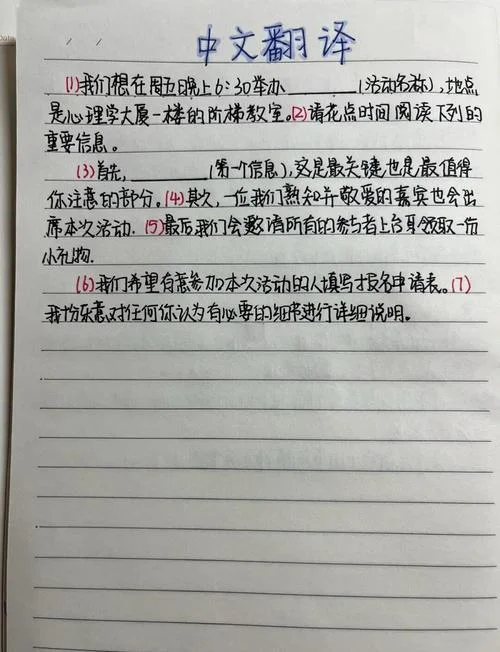 中文翻译
(1)我们想在周五晚上6:30举办________(活动名称),地点
是心理学大厦一楼的阶梯教室。(2)请花点时间阅读下列的
重要信息。
(3)首先,________(第一个信息),这是最关键也是最值得
你注意的部分。(4)其次,一位我们熟知并敬爱的嘉宾也会出
席本次活动.(5)最后我们会邀请所有的参与者上台领取一份
小礼物.
(6)我们希望有意参加本次活动的人填写报名申请表。(7)
我十分乐意对任何你认为有必要的细节进行详细说明。